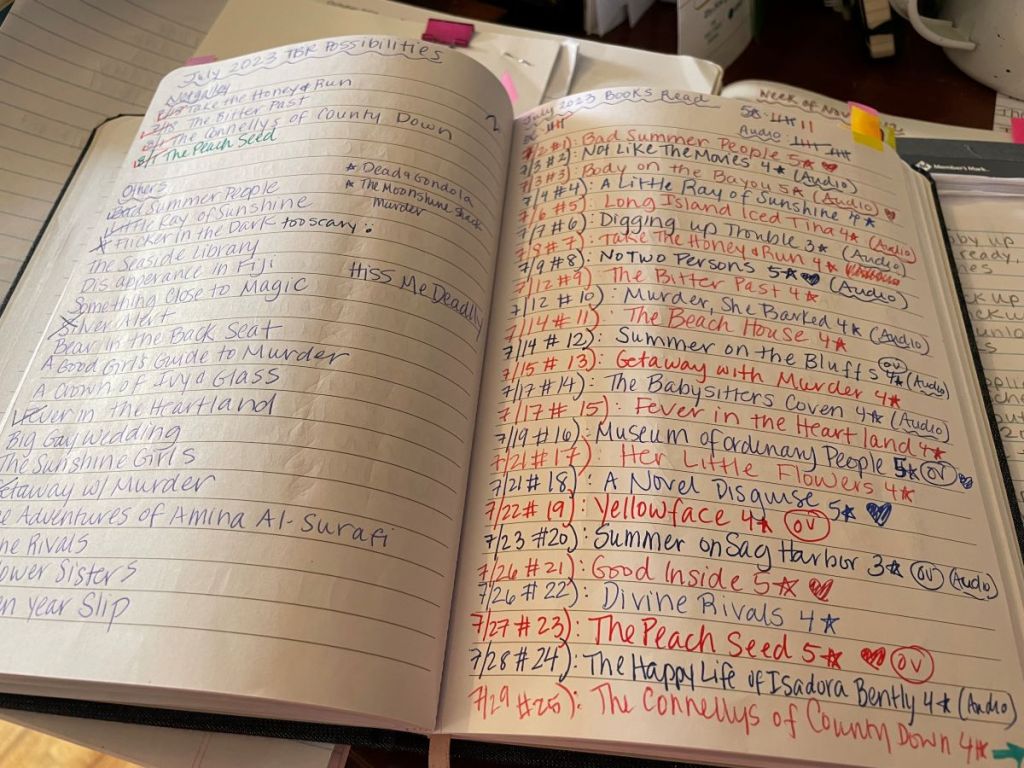 July 2023 TBR Possibilities
Netgalley
7/15 Take the Honey & Run
The Bitter Past
The Connellys of County Down
8/1 The Peach Seed
Others
Bad Summer People
Little Ray of Sunshine
X Flicker in the Dark too scary
The Seaside Library
Disapperance in Fiji
Something Close to Magic
Silver Alert
Bear in the Back Seat
A Good Girl's Guide to Murder
A Crown of Ivy & Glass
Fever in the Heartland
Big Gay Wedding
The Sunshine Girls
Getaway w/ Murder
Adventures of Amina Al-Surafi
Rivals
Sisters
Year Slip
★ Dead & Gondola
★ The Moonshine Shack
Murder
Hiss Me Deadly
2
July 2023 Books Read
Week of
5★
Audio:
7/2 #1): Bad Summer People 5★ ♥
7/3 #2): Not Like The Movies 4★ (Audio)
7/3 #3): Body on the Bayou 5★
7/4 #4): A Little Ray of Sunshine 4★ (Audio) ♥
7/6 #5): Long Island Iced Tina 4★ (Audio)
7/7 #6): Digging up Trouble 3★ (Audio)
7/8 #7): Take The Honey & Run 4★
7/9 #8): No Two Persons 5★ ♥ (Audio)
7/12 #9): The Bitter Past 4★
7/12 #10): Murder, She Barked 4★ (Audio)
7/14 #11): The Beach House 4★
7/14 #12): Summer on the Bluffs 4★ OV (Audio)
7/15 #13): Getaway with Murder 4★
7/17 #14): The Babysitters Coven 4★ (Audio)
7/17 #15): Fever in the Heart land 4★
7/19 #16): Museum of ordunary People 5★ OV ♥
7/21 #17): Her Little Flowers 4★
7/21 #18): A Novel Disguise 5★ ♥
7/22 #19): Yellowface 4★ OV
7/23 #20): Summer on Sag Harbor 3★ OV (Audio)
7/26 #21): Good Inside 5★ ♥
7/26 #22): Divine Rivals 4★
7/27 #23): The Peach Seed 5★ ♥ OV
7/28 #24): The Happy Life of Isadora Bently 4★ (Audio)
7/29 #25): The Connellys of County Down 4★ →
Member's Mark